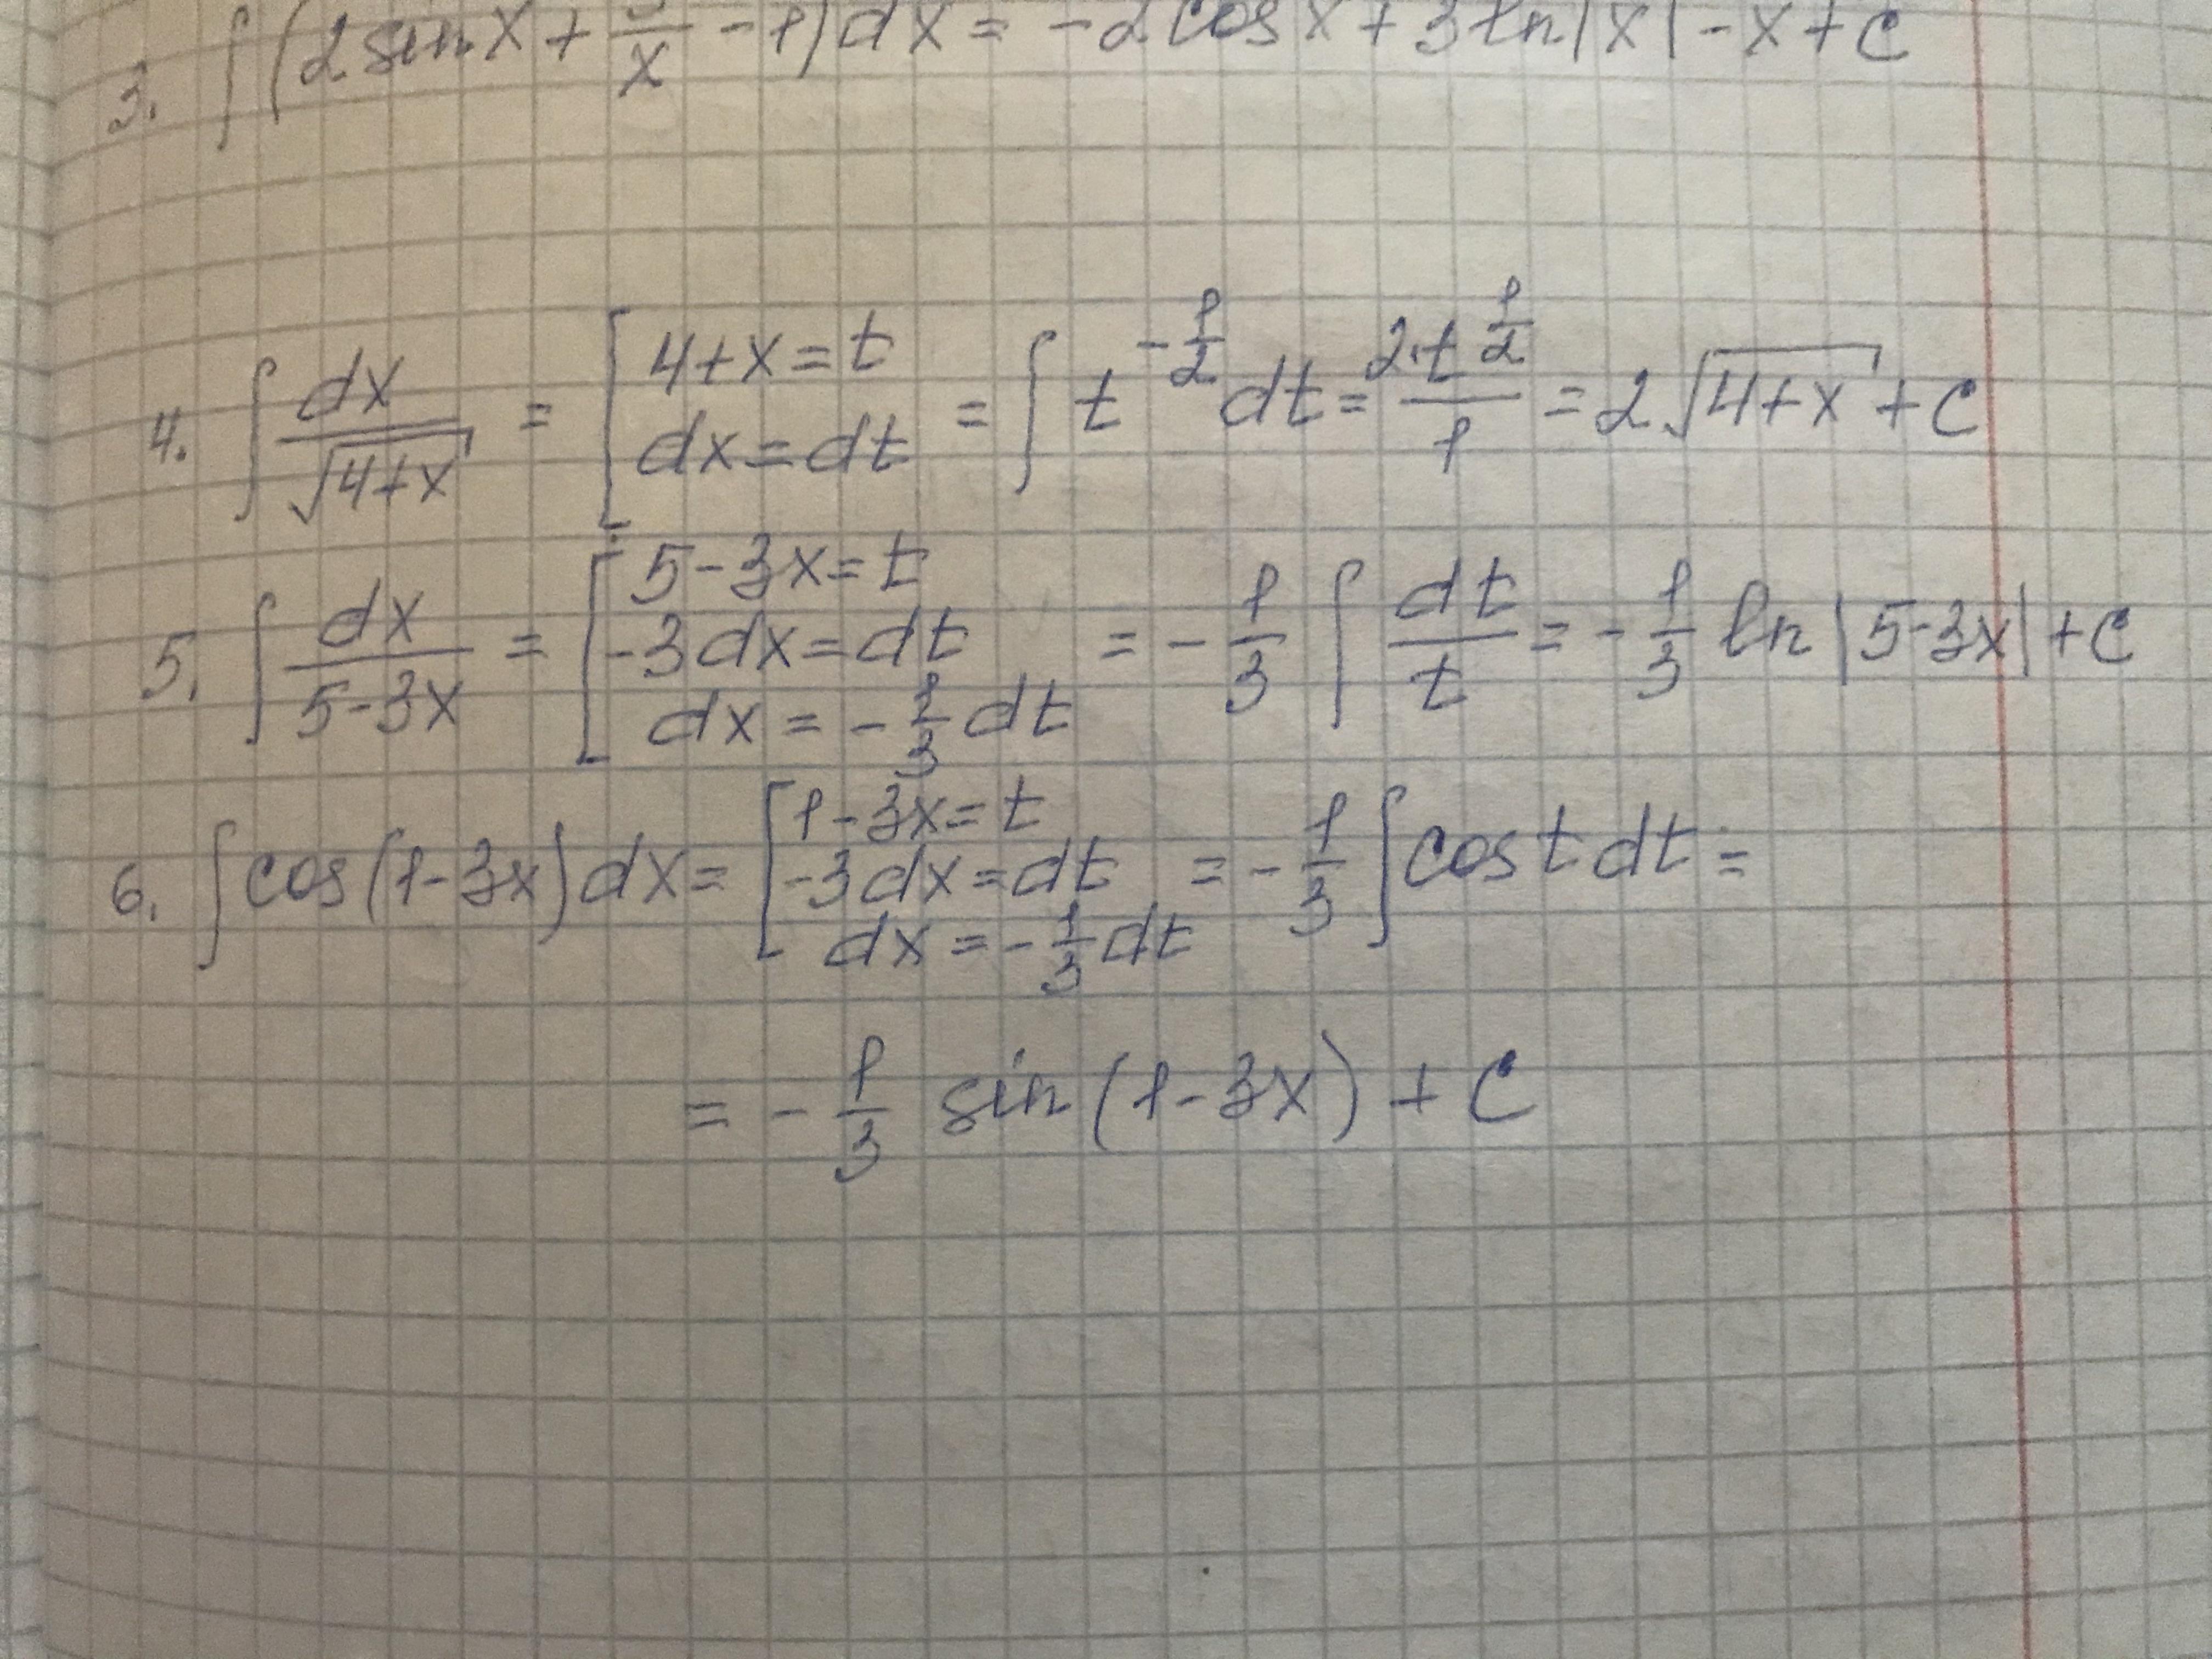 3. ∫(2 sin x + 3/x - 1) dx = -2 cos x + 3 ln|x| - x + C
4. ∫ dx/√(4+x) = [4+x=t
dx=dt = ∫ t^(-1/2) dt = 2·t^(1/2)/1 = 2√(4+x) + C
5. ∫ dx/(5-3x) = [5-3x=t
-3dx=dt = -1/3 ∫ dt/t = -1/3 ln|5-3x| + C
dx = -1/3 dt
6. ∫ cos(1-3x) dx = [1-3x=t
-3dx=dt = -1/3 ∫ cos t dt =
dx = -1/3 dt
= -1/3 sin(1-3x) + C